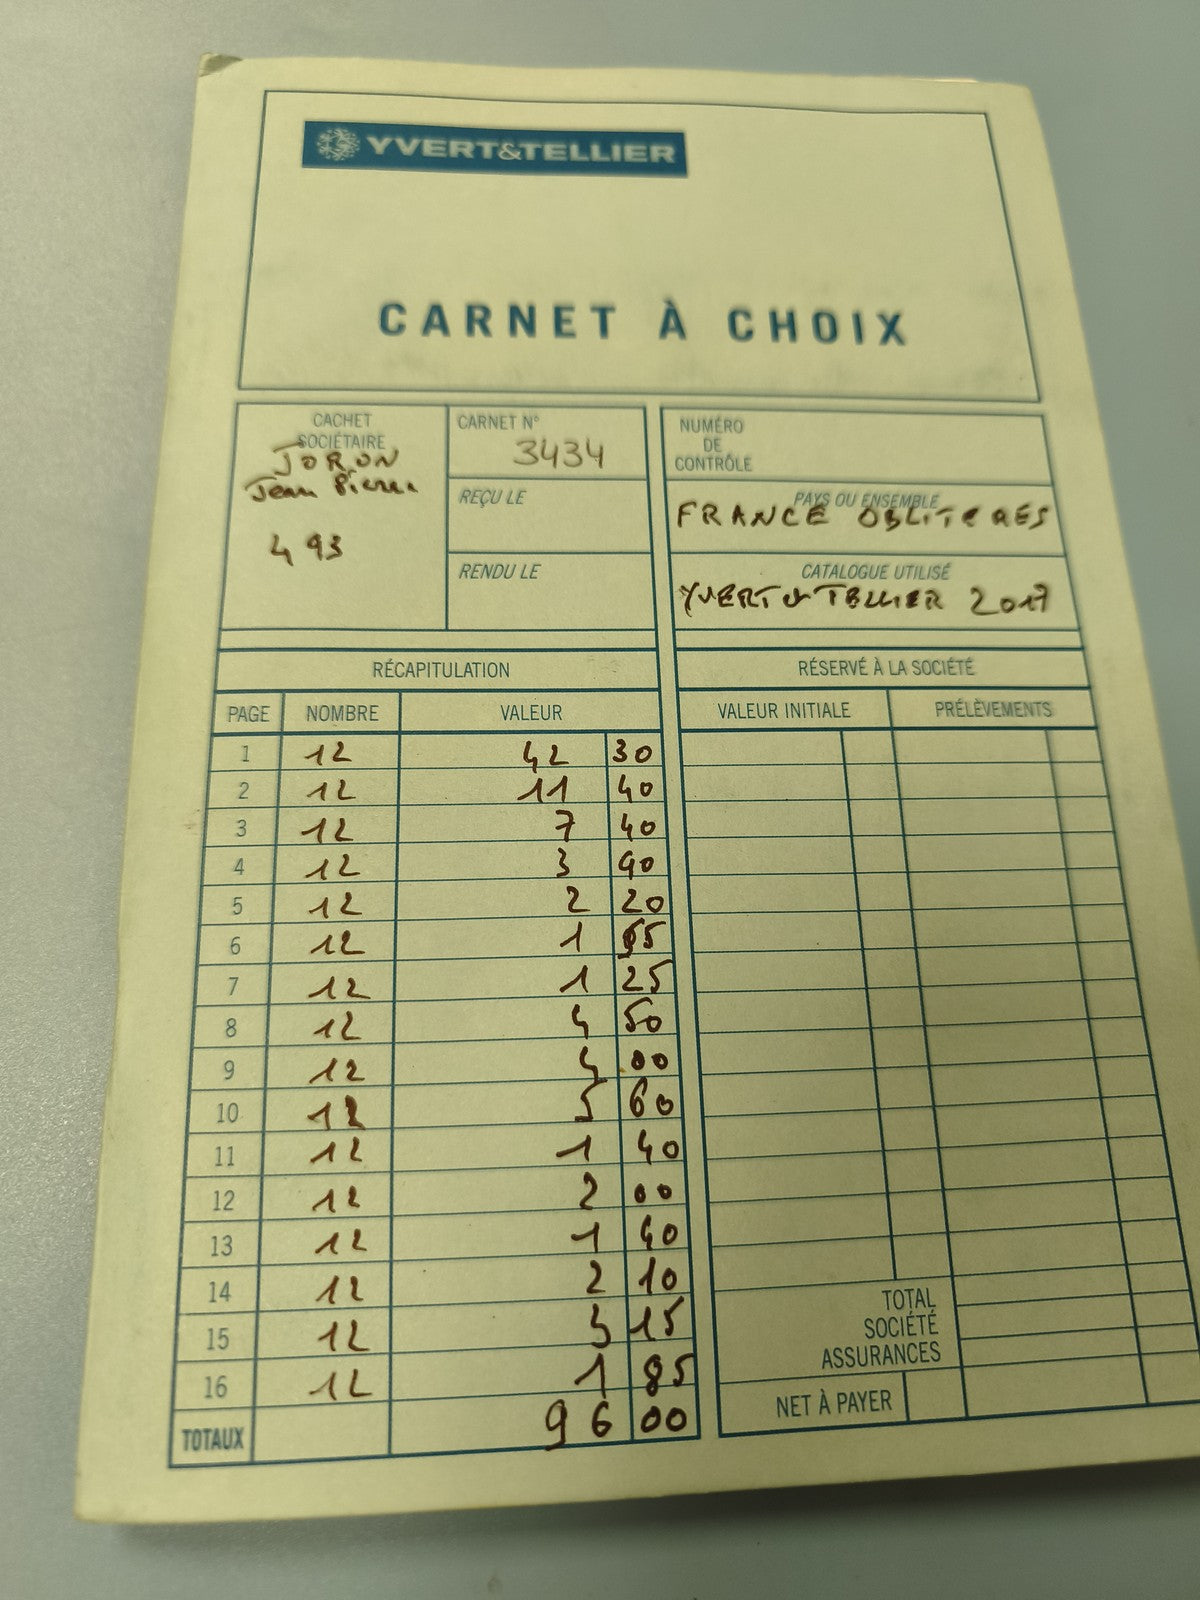 YVERT&TELLIER
CARNET À CHOIX
CACHET SOCIÉTAIRE
JORON
Jean Pierre
493
CARNET N° 3434
REÇU LE
RENDU LE
NUMÉRO DE CONTRÔLE
PAYS OU ENSEMBLE
FRANCE OBLITERES
CATALOGUE UTILISÉ
YVERT & TELLIER 2017
RÉCAPITULATION
PAGE NOMBRE VALEUR
1 12 42 30
2 12 11 40
3 12 7 40
4 12 3 90
5 12 2 20
6 12 1 55
7 12 1 25
8 12 4 50
9 12 4 00
10 12 5 60
11 12 1 40
12 12 2 00
13 12 1 40
14 12 2 10
15 12 3 15
16 12 1 85
TOTAUX 96 00
RÉSERVÉ À LA SOCIÉTÉ
VALEUR INITIALE PRÉLÈVEMENTS
TOTAL
SOCIÉTÉ
ASSURANCES
NET À PAYER